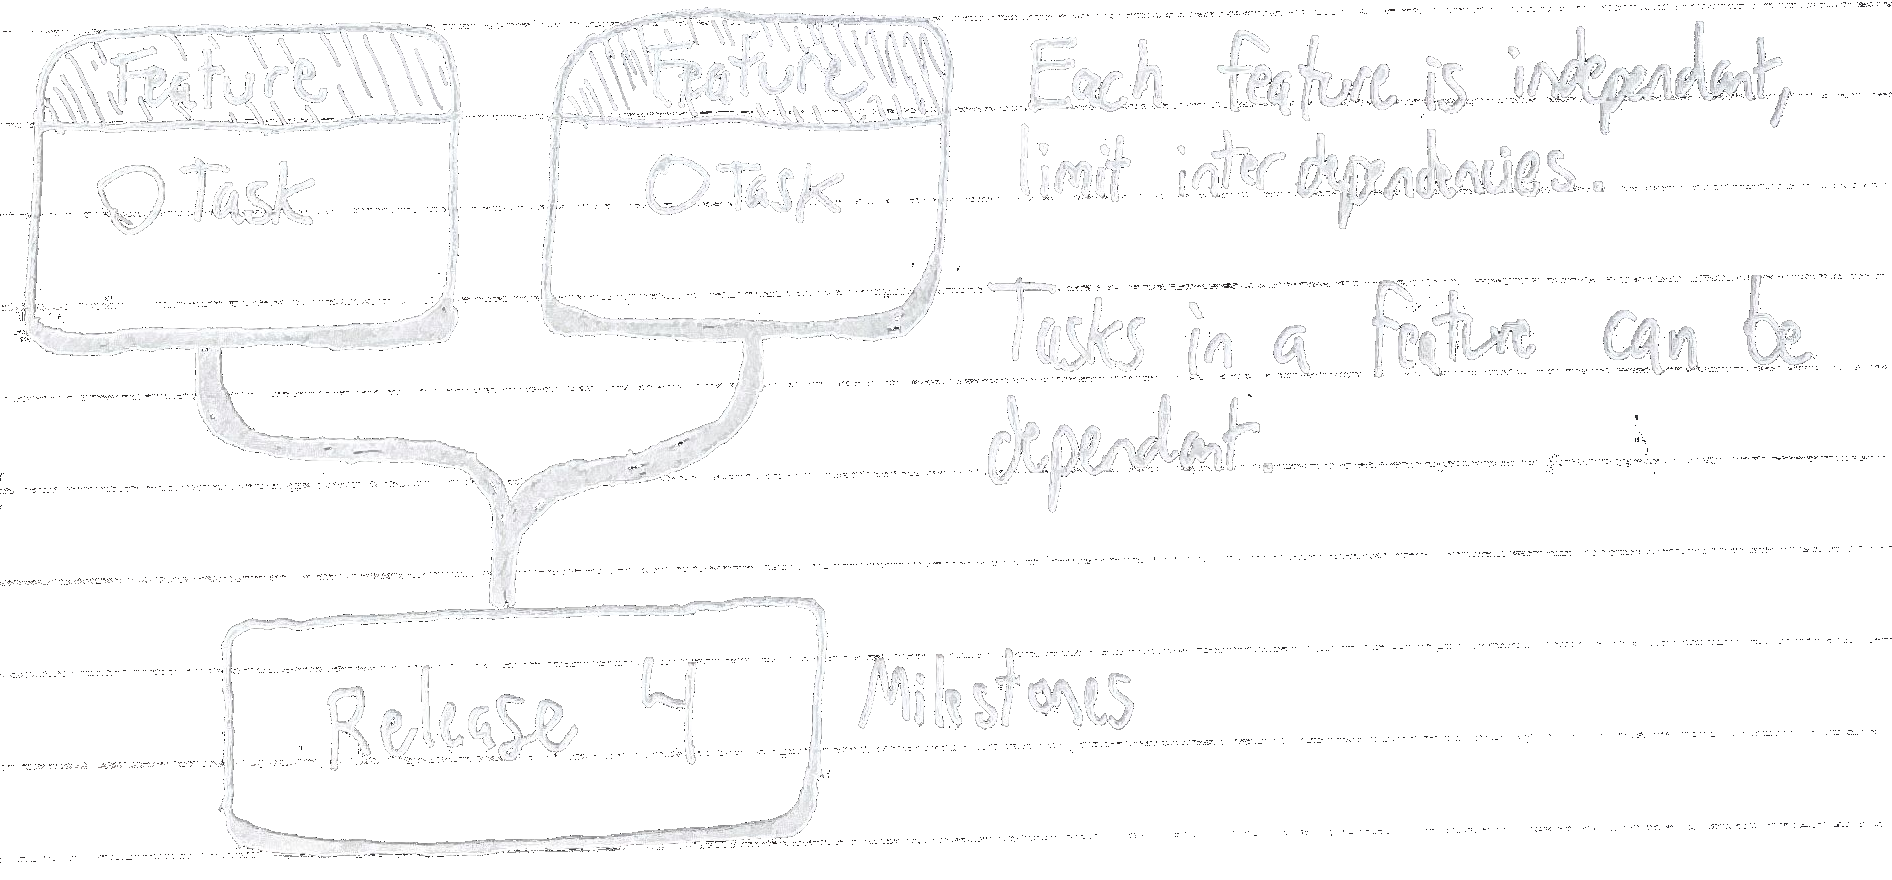 Feature
Feature
Each feature is independant,
limit inter dependencies.
Task
Task
Tasks in a feature can be
dependant.
Release 4
Milestones